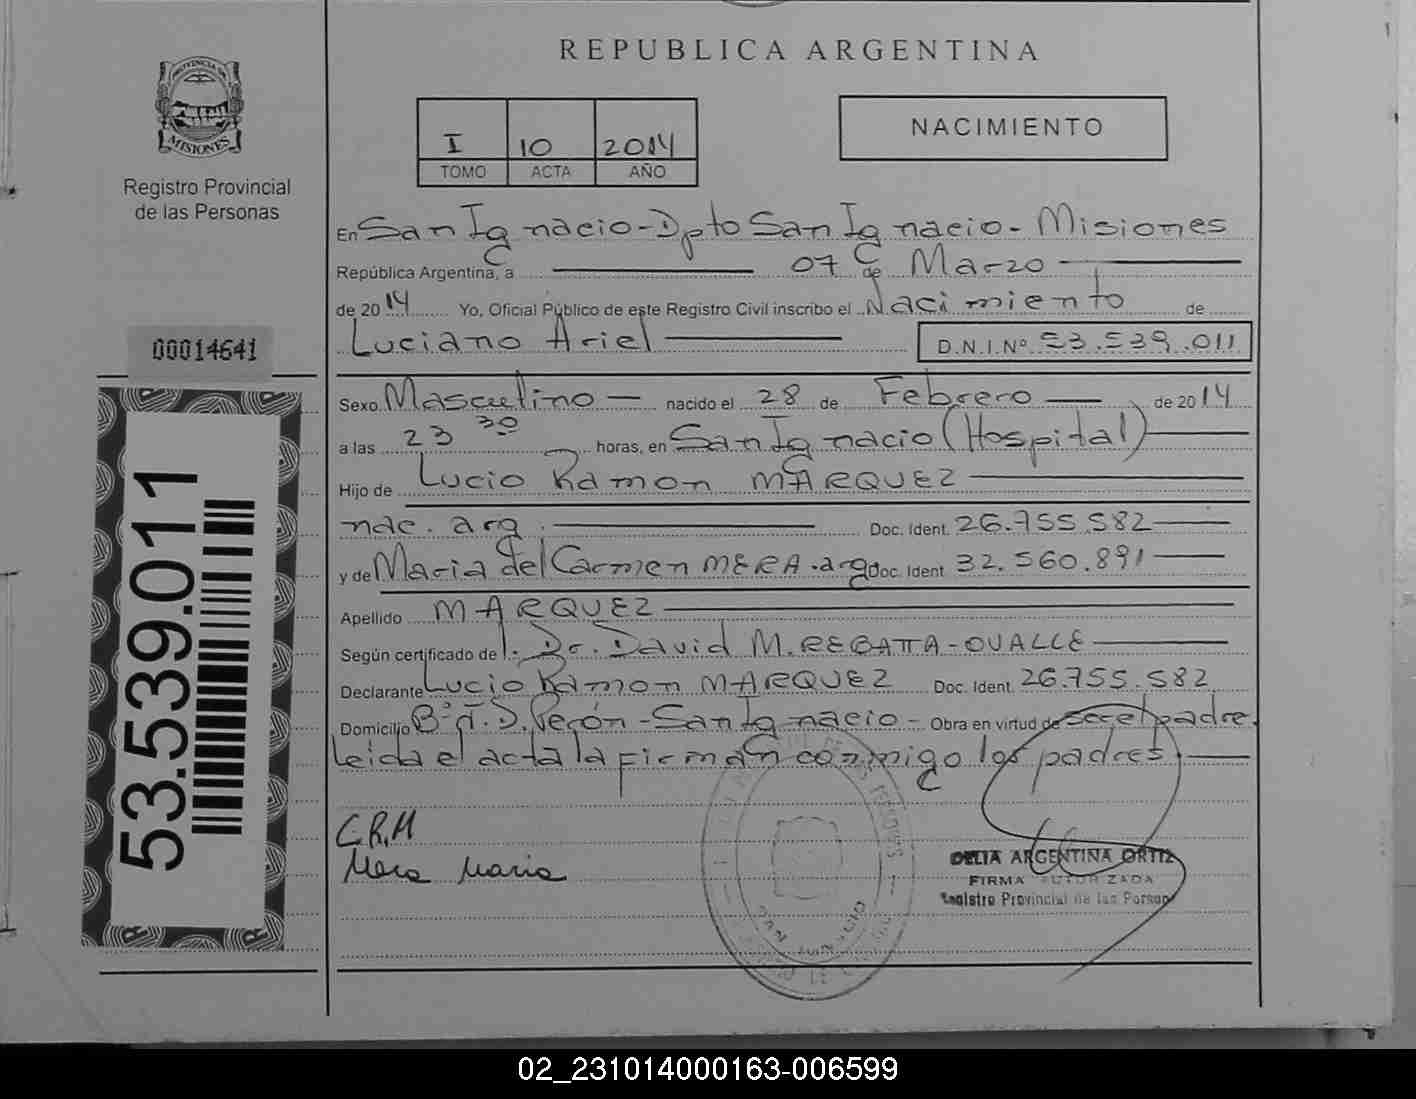 REPUBLICA ARGENTINA
PROVINCIA DE
MISIONES
Registro Provincial
de las Personas
I 10 2014
TOMO ACTA AÑO
NACIMIENTO
En San Ignacio - Dpto San Ignacio - Misiones
República Argentina, a 07 de Marzo
de 2014 Yo, Oficial Público de este Registro Civil inscribo el Nacimiento de
Luciano Ariel D.N.I.Nº 53.539.011
00014641
Sexo Masculino nacido el 28 de Febrero de 2014
a las 23 30 horas, en San Ignacio (Hospital)
Hijo de Lucio Ramon MARQUEZ
nac. arg. Doc. Ident. 26.755.582
y de Maria del Carmen MERA . arg. Doc. Ident 32.560.891
Apellido MARQUEZ
Según certificado del. Dr. David M. REGATTA - OVALLE
Declarante Lucio Ramon MARQUEZ Doc. Ident. 26.755.582
Domicilio Bº J. D. Perón - San Ignacio - Obra en virtud de ser el padre
Leida el acta la firman conmigo los padres
53.539.011
L.R.M
Mera Maria
DELIA ARGENTINA ORTIZ
FIRMA AUTORIZADA
Registro Provincial de las Person
SAN IGNACIO
02_231014000163-006599